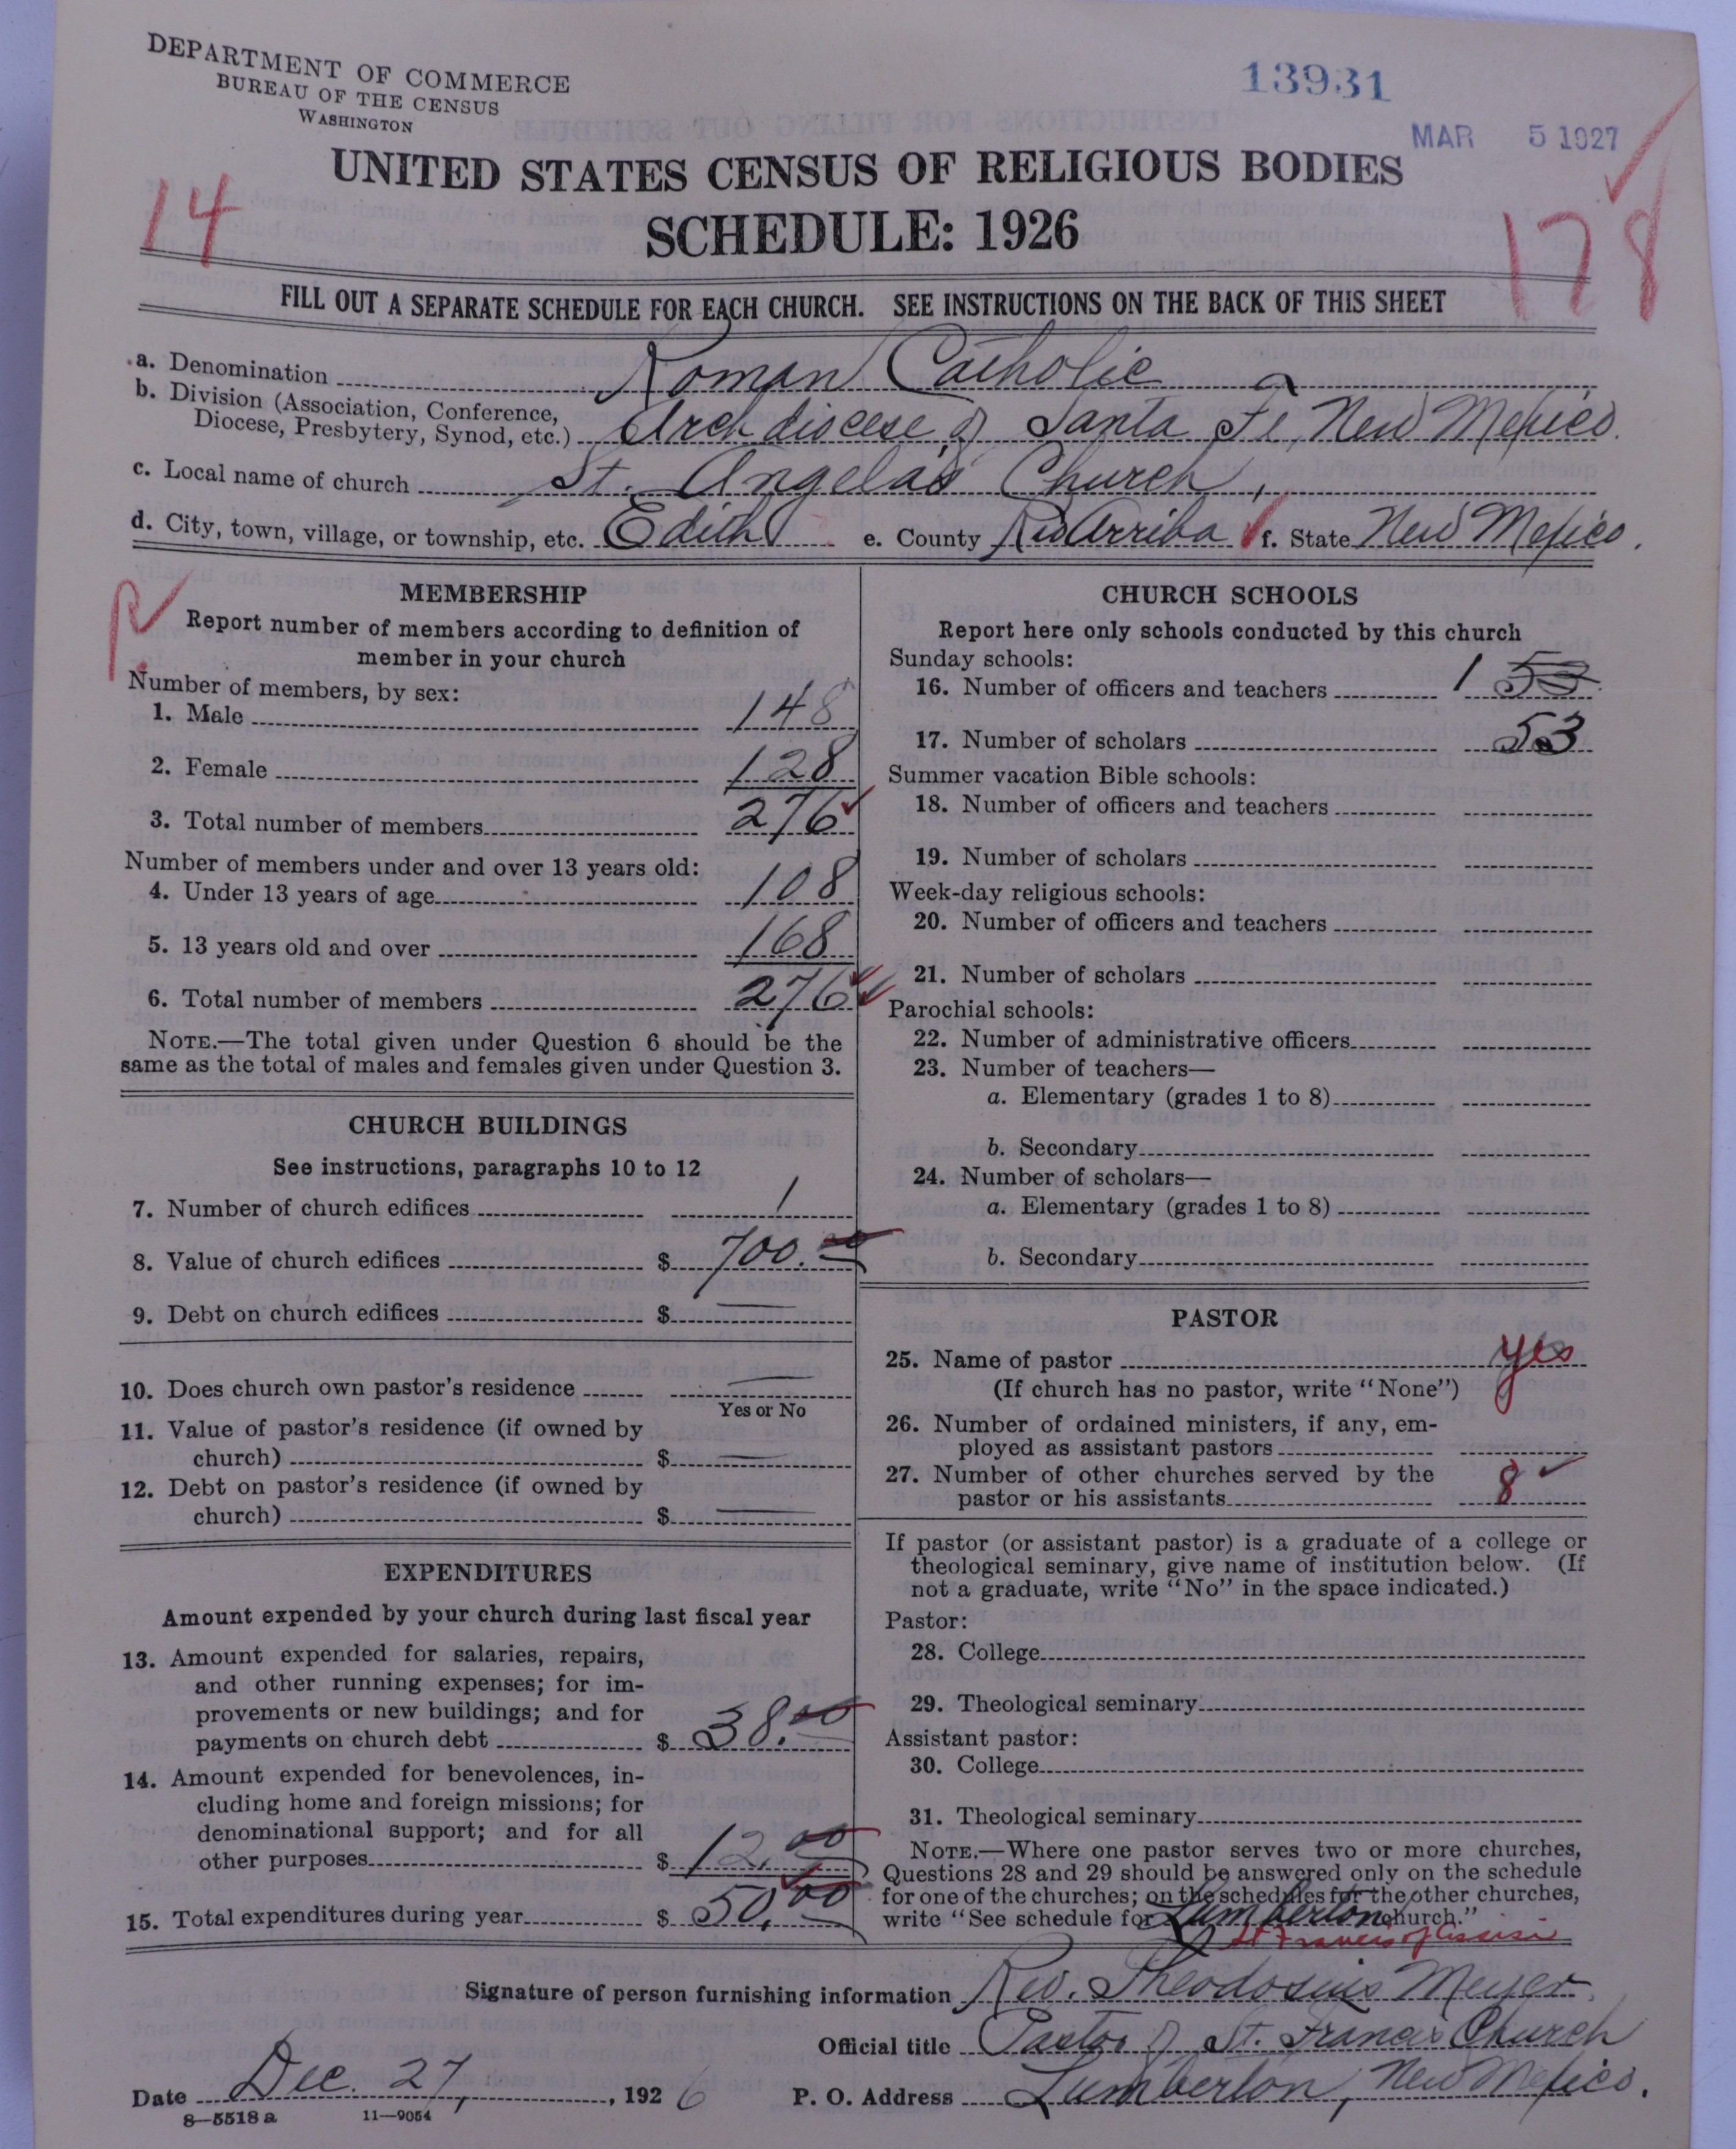 DEPARTMENT OF COMMERCE
BUREAU OF THE CENSUS
WASHINGTON
13931
MAR 5 1927
UNITED STATES CENSUS OF RELIGIOUS BODIES
SCHEDULE: 1926
14
178
FILL OUT A SEPARATE SCHEDULE FOR EACH CHURCH. SEE INSTRUCTIONS ON THE BACK OF THIS SHEET
a. Denomination Roman Catholic
b. Division (Association, Conference, Diocese, Presbytery, Synod, etc.) Archdiocese of Santa Fe, New Mexico.
c. Local name of church St. Angela's Church,
d. City, town, village, or township, etc. Edith e. County Rio Arriba f. State New Mexico.
MEMBERSHIP
Report number of members according to definition of
member in your church
Number of members, by sex:
1. Male 148
2. Female 128
3. Total number of members 276
Number of members under and over 13 years old:
4. Under 13 years of age 108
5. 13 years old and over 168
6. Total number of members 276
NOTE.—The total given under Question 6 should be the
same as the total of males and females given under Question 3.
CHURCH BUILDINGS
See instructions, paragraphs 10 to 12
7. Number of church edifices 1
8. Value of church edifices $ 700.00
9. Debt on church edifices $ —
10. Does church own pastor's residence —
Yes or No
11. Value of pastor's residence (if owned by
church) $ —
12. Debt on pastor's residence (if owned by
church) $ —
EXPENDITURES
Amount expended by your church during last fiscal year
13. Amount expended for salaries, repairs,
and other running expenses; for im-
provements or new buildings; and for
payments on church debt $ 38.00
14. Amount expended for benevolences, in-
cluding home and foreign missions; for
denominational support; and for all
other purposes $ 12.00
15. Total expenditures during year $ 50.00
CHURCH SCHOOLS
Report here only schools conducted by this church
Sunday schools:
16. Number of officers and teachers 1 53
17. Number of scholars 53
Summer vacation Bible schools:
18. Number of officers and teachers
19. Number of scholars
Week-day religious schools:
20. Number of officers and teachers
21. Number of scholars
Parochial schools:
22. Number of administrative officers
23. Number of teachers—
a. Elementary (grades 1 to 8)
b. Secondary
24. Number of scholars—
a. Elementary (grades 1 to 8)
b. Secondary
PASTOR
25. Name of pastor yes
(If church has no pastor, write "None")
26. Number of ordained ministers, if any, em-
ployed as assistant pastors
27. Number of other churches served by the
pastor or his assistants 8
If pastor (or assistant pastor) is a graduate of a college or
theological seminary, give name of institution below. (If
not a graduate, write "No" in the space indicated.)
Pastor:
28. College
29. Theological seminary
Assistant pastor:
30. College
31. Theological seminary
NOTE.—Where one pastor serves two or more churches,
Questions 28 and 29 should be answered only on the schedule
for one of the churches; on the schedules for the other churches,
write "See schedule for Lumberton church."
St Francis of Assisi
Signature of person furnishing information Rev. Theodosius Meyer
Official title Pastor of St. Francis Church
Date Dec. 27, 1926 P. O. Address Lumberton, New Mexico.
8—5518 a 11—9054